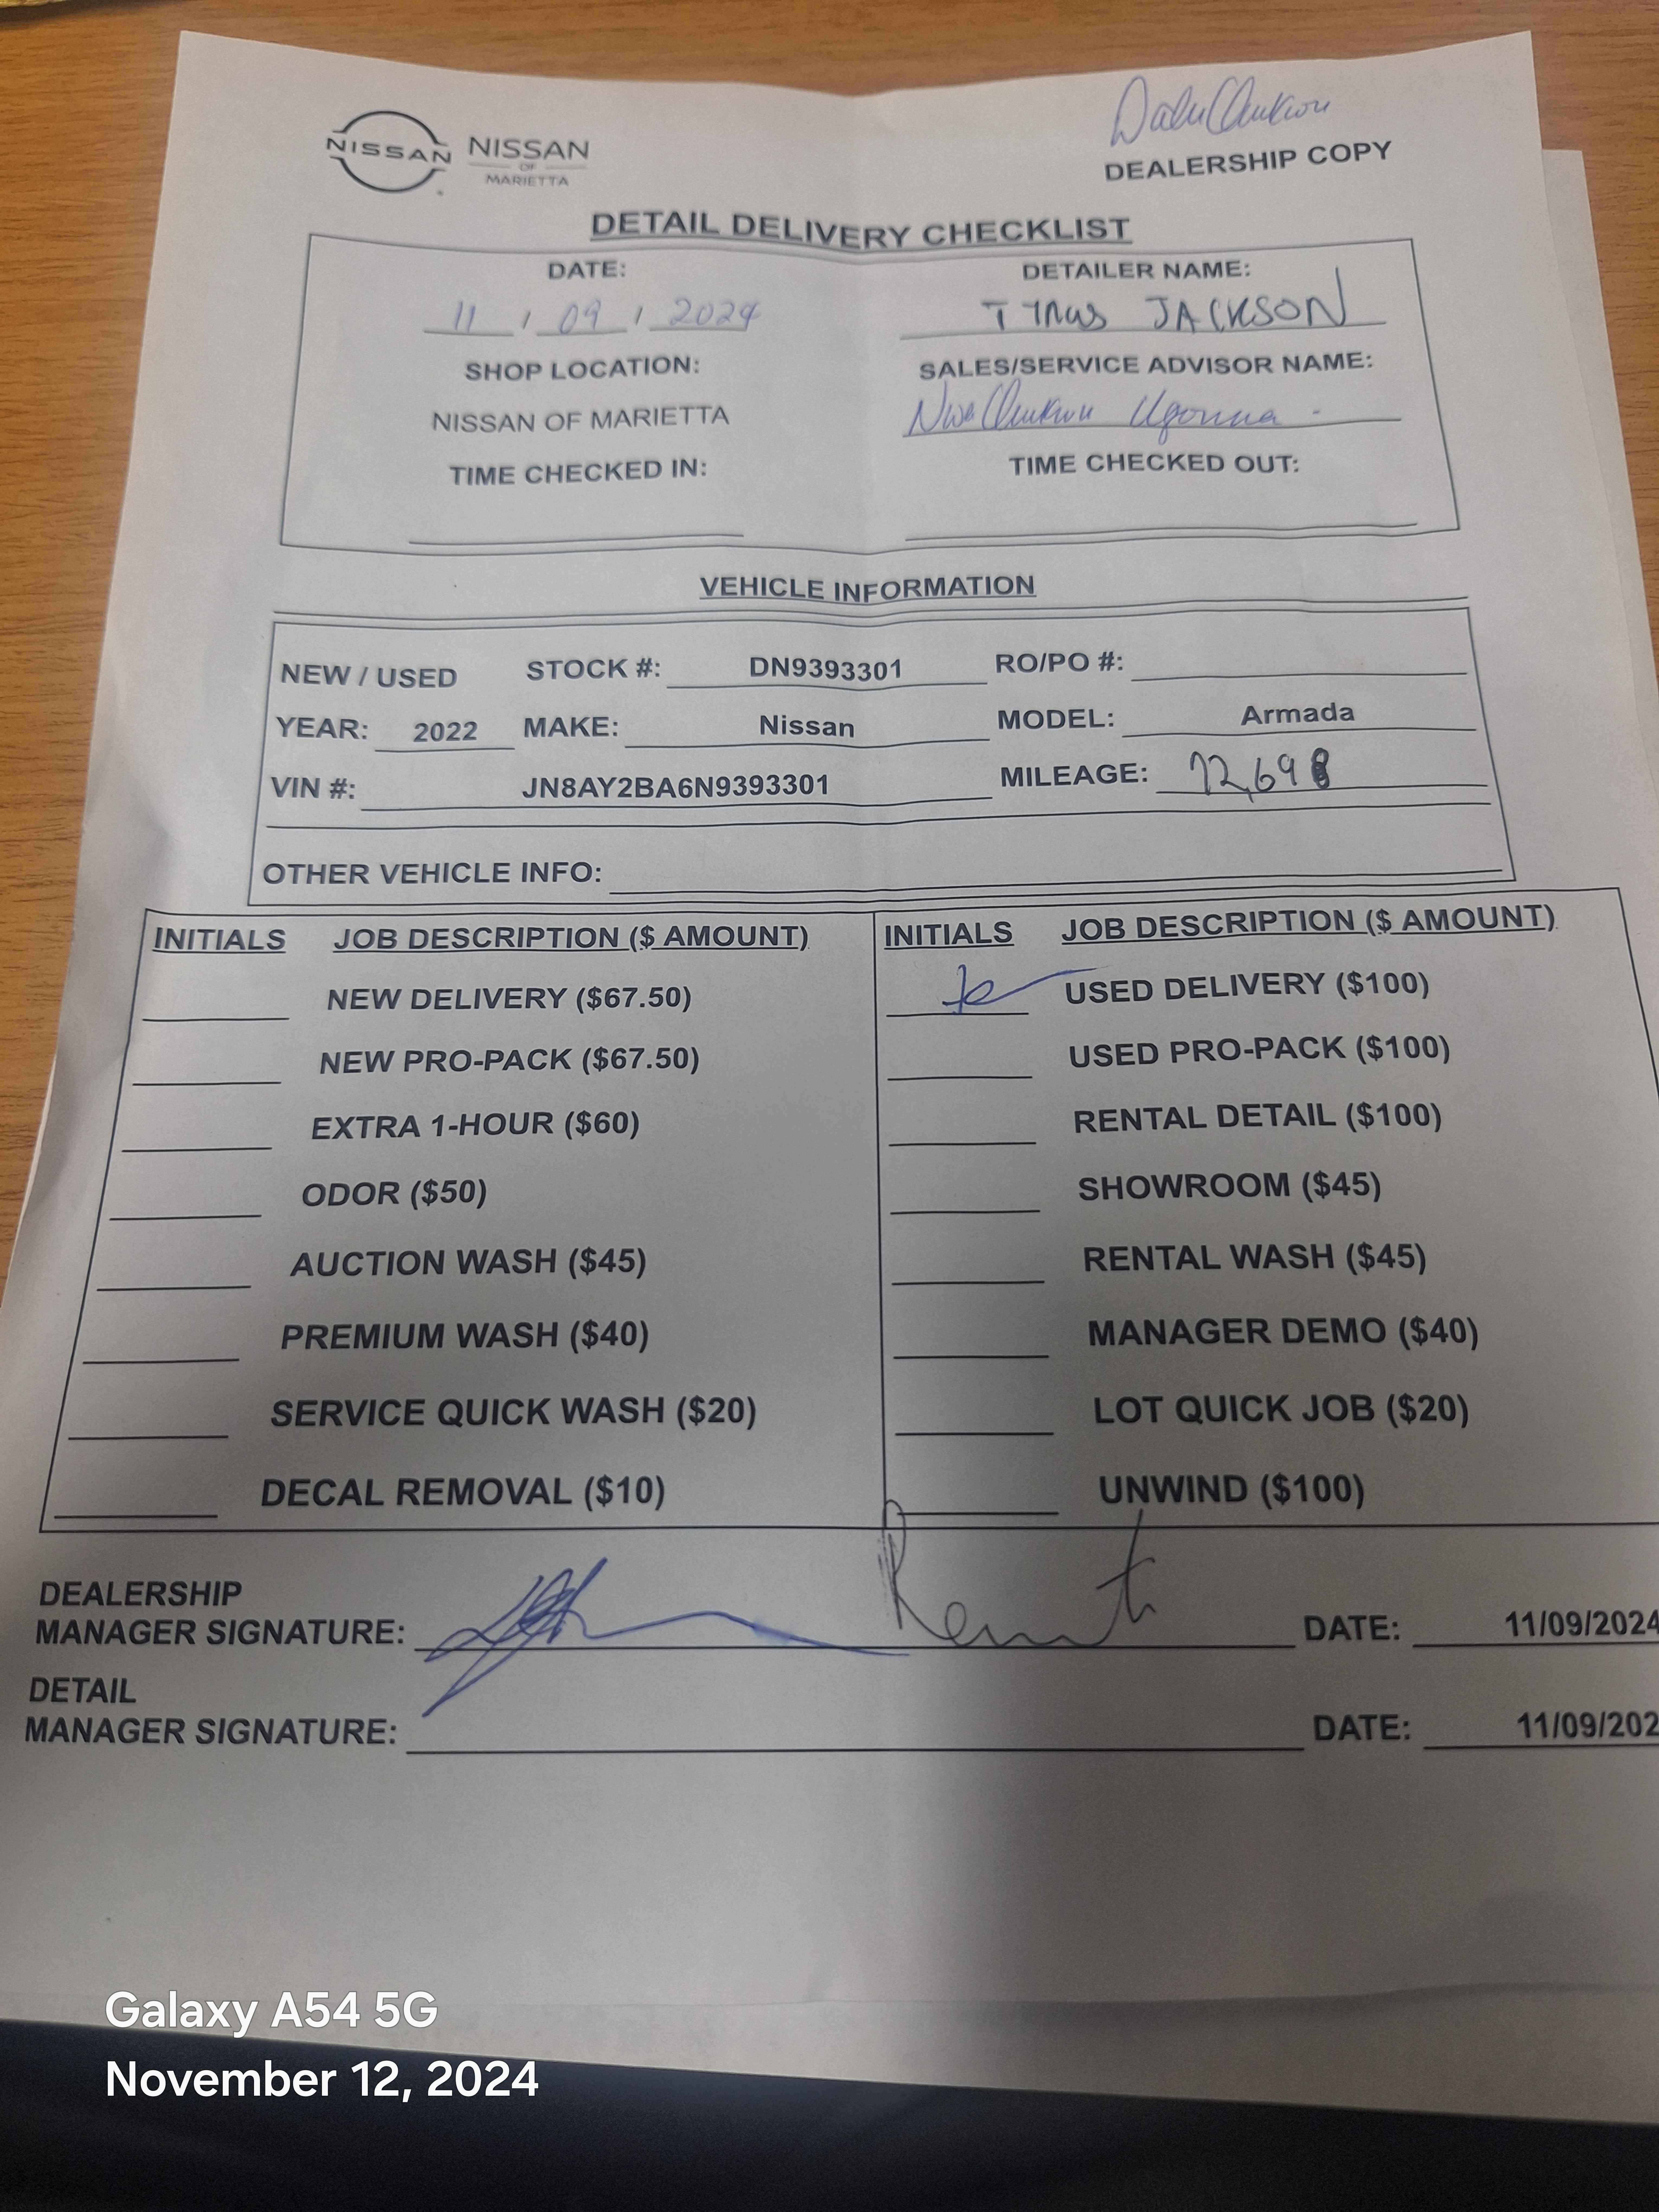 NISSAN NISSAN
OF
MARIETTA
DEALERSHIP COPY
DETAIL DELIVERY CHECKLIST
DATE: DETAILER NAME:
11 / 09 / 2024 JACKSON
SHOP LOCATION: SALES/SERVICE ADVISOR NAME:
NISSAN OF MARIETTA Ugonna
TIME CHECKED IN: TIME CHECKED OUT:
VEHICLE INFORMATION
NEW / USED STOCK #: DN9393301 RO/PO #:
YEAR: 2022 MAKE: Nissan MODEL: Armada
VIN #: JN8AY2BA6N9393301 MILEAGE: 72,698
OTHER VEHICLE INFO:
INITIALS JOB DESCRIPTION ($ AMOUNT) INITIALS JOB DESCRIPTION ($ AMOUNT)
NEW DELIVERY ($67.50) USED DELIVERY ($100)
NEW PRO-PACK ($67.50) USED PRO-PACK ($100)
EXTRA 1-HOUR ($60) RENTAL DETAIL ($100)
ODOR ($50) SHOWROOM ($45)
AUCTION WASH ($45) RENTAL WASH ($45)
PREMIUM WASH ($40) MANAGER DEMO ($40)
SERVICE QUICK WASH ($20) LOT QUICK JOB ($20)
DECAL REMOVAL ($10) UNWIND ($100)
DEALERSHIP
MANAGER SIGNATURE: DATE: 11/09/2024
DETAIL
MANAGER SIGNATURE: DATE: 11/09/202
Galaxy A54 5G
November 12, 2024